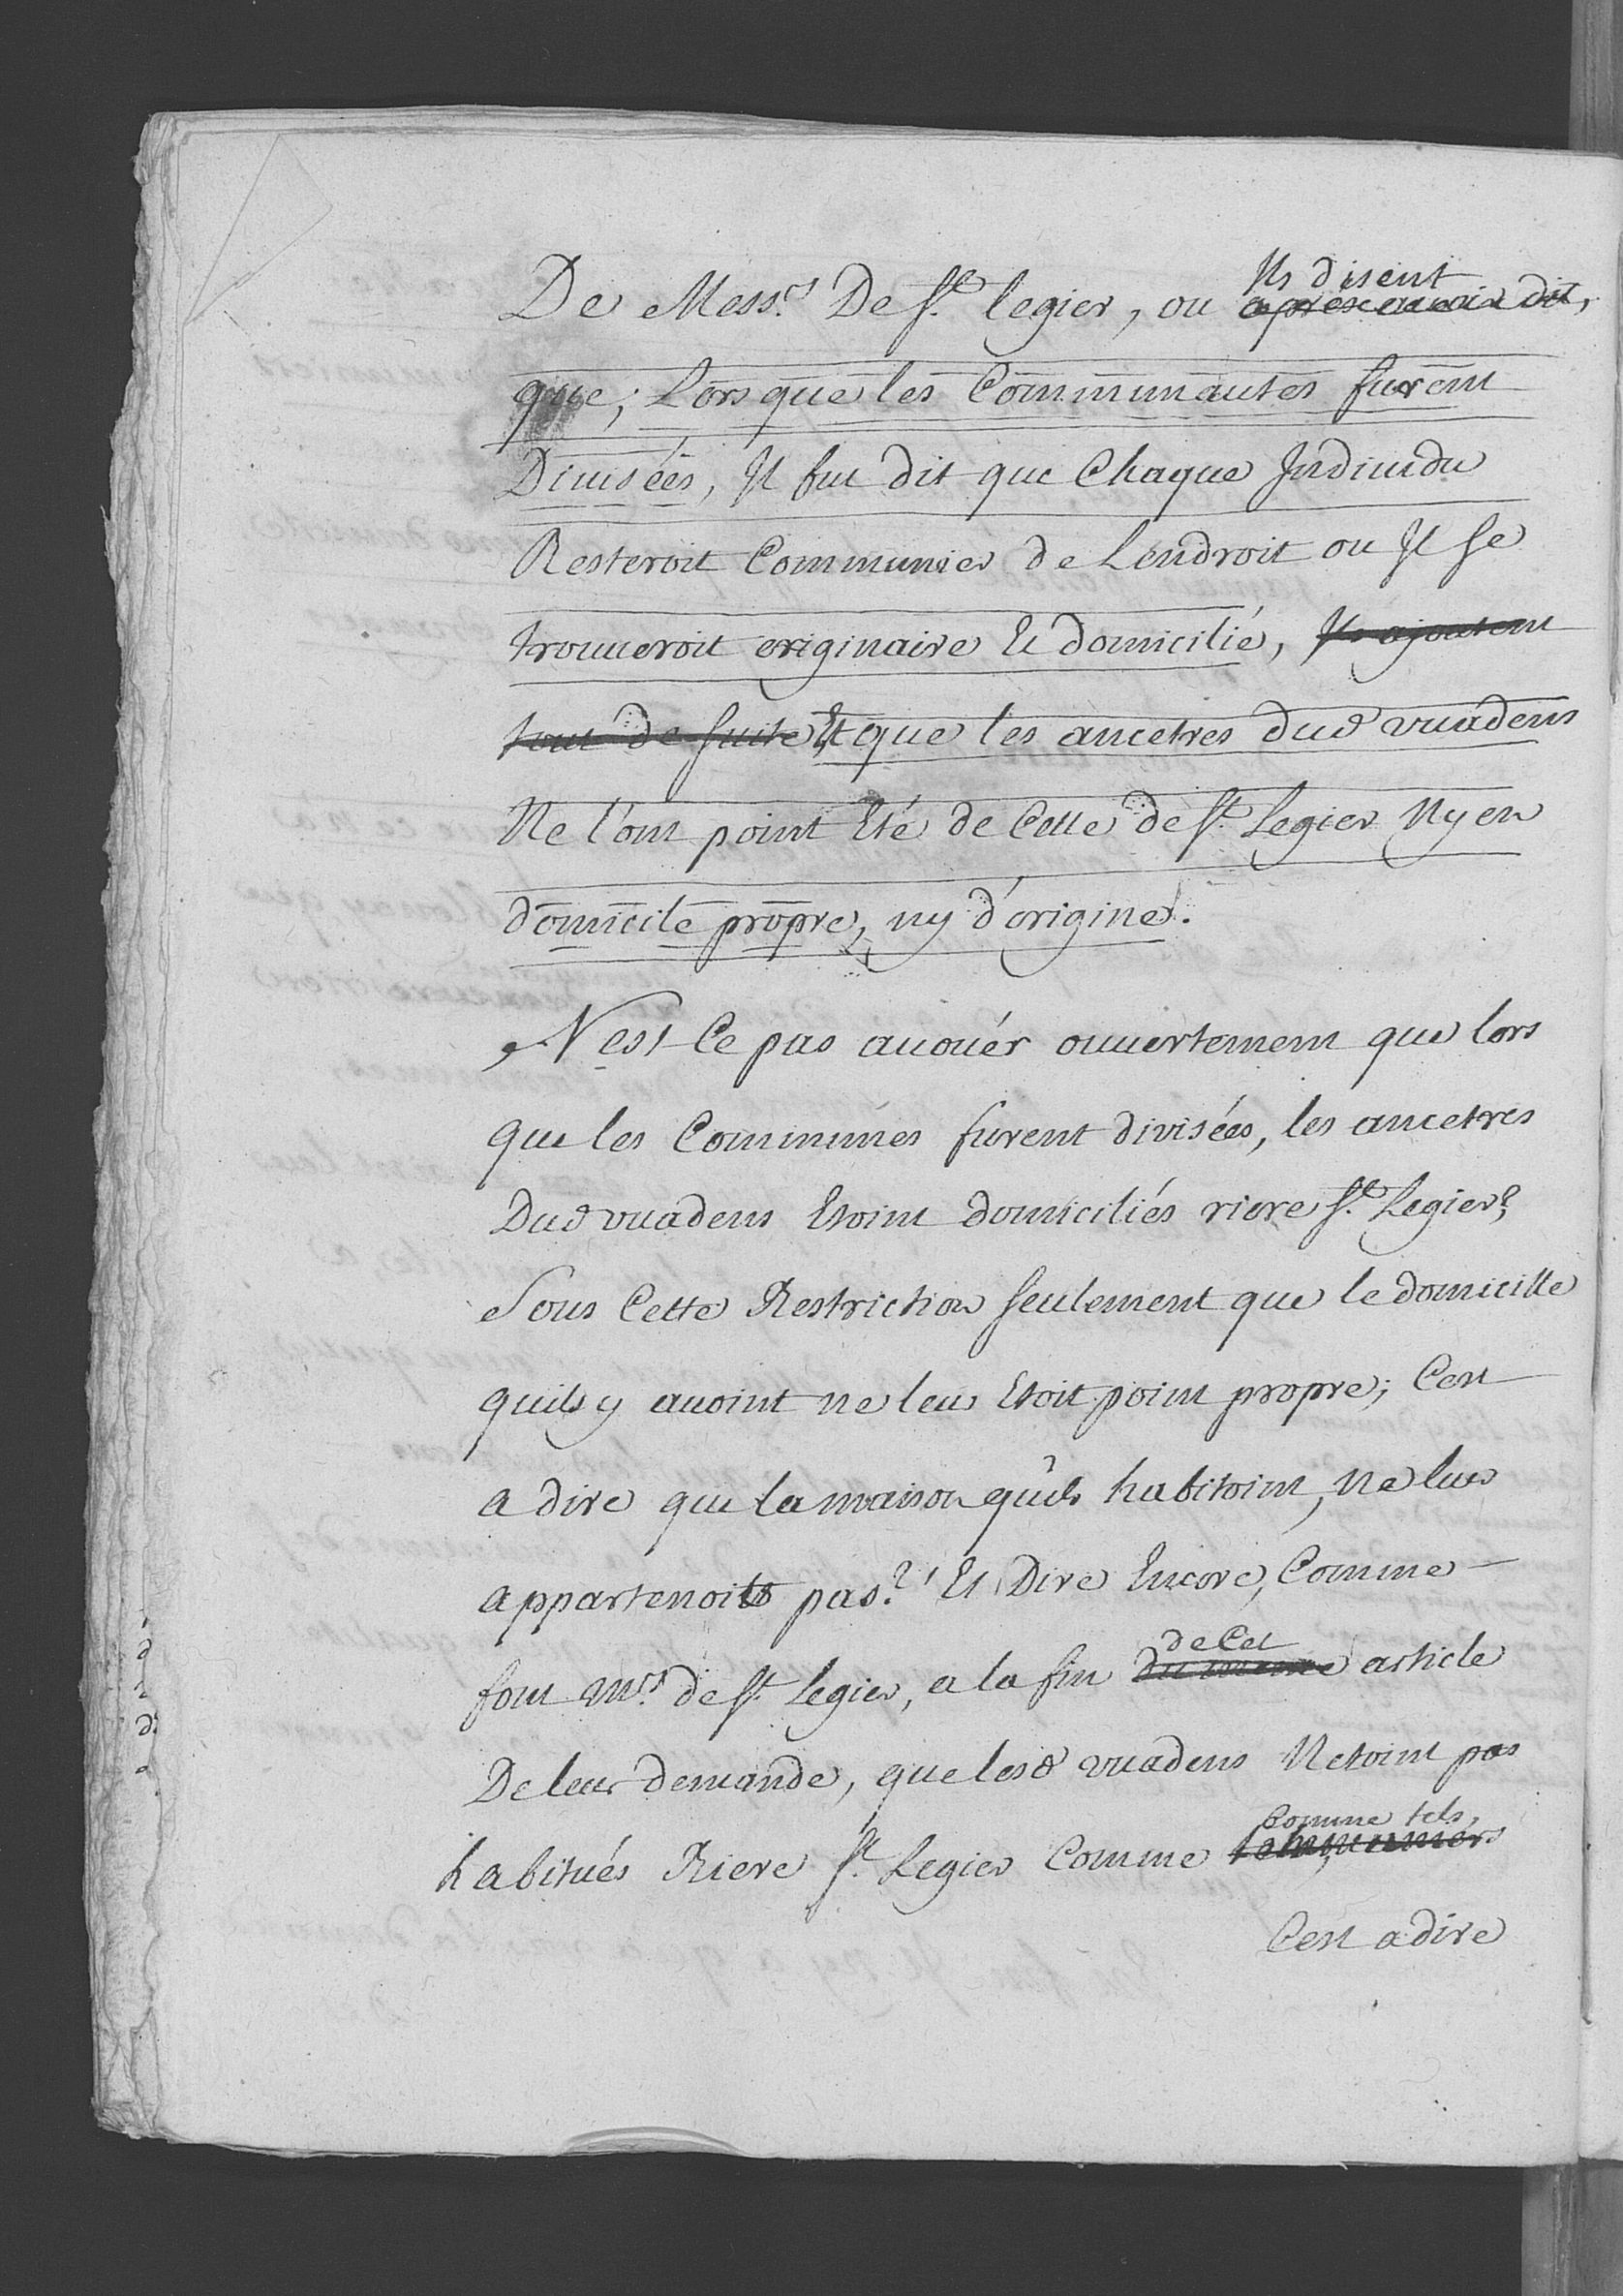 De Mess.rs De St. legier, ou Ils disent apres avoir dit,
que; Lors que les Communautes furent
Divisées, Il fut dit que Chaque Individu
Resteroit Communier de Lendroit ou Il Se
trouueroit originaire Et domicilié, Ils ajoutent
tout de suite Et que les ancetres dud vuadens
Ne l'ont point Eté de Cette de St. Legier Ny en
domicile propre, ny d'origine.
Nest Ce pas auouér ouuertement que lors
que les Communes furent divisées, les ancetres
Dud vuadens Etoint domiciliés riere St. Legier?
Sous Cette Restriction Seulement que le domicille
quils y auoint ne leur Etoit point propre; Cest
a dire que la maison quils habitoint, ne leur
appartenoit pas? Et Dire Encore, Comme
font Mrs. de St. Legier, a la fin
de Cet
article
De leur demande, que lesd vuadens Netoint pas
Comme tels,
habitués Riere St. Legier Comme
Cest a dire